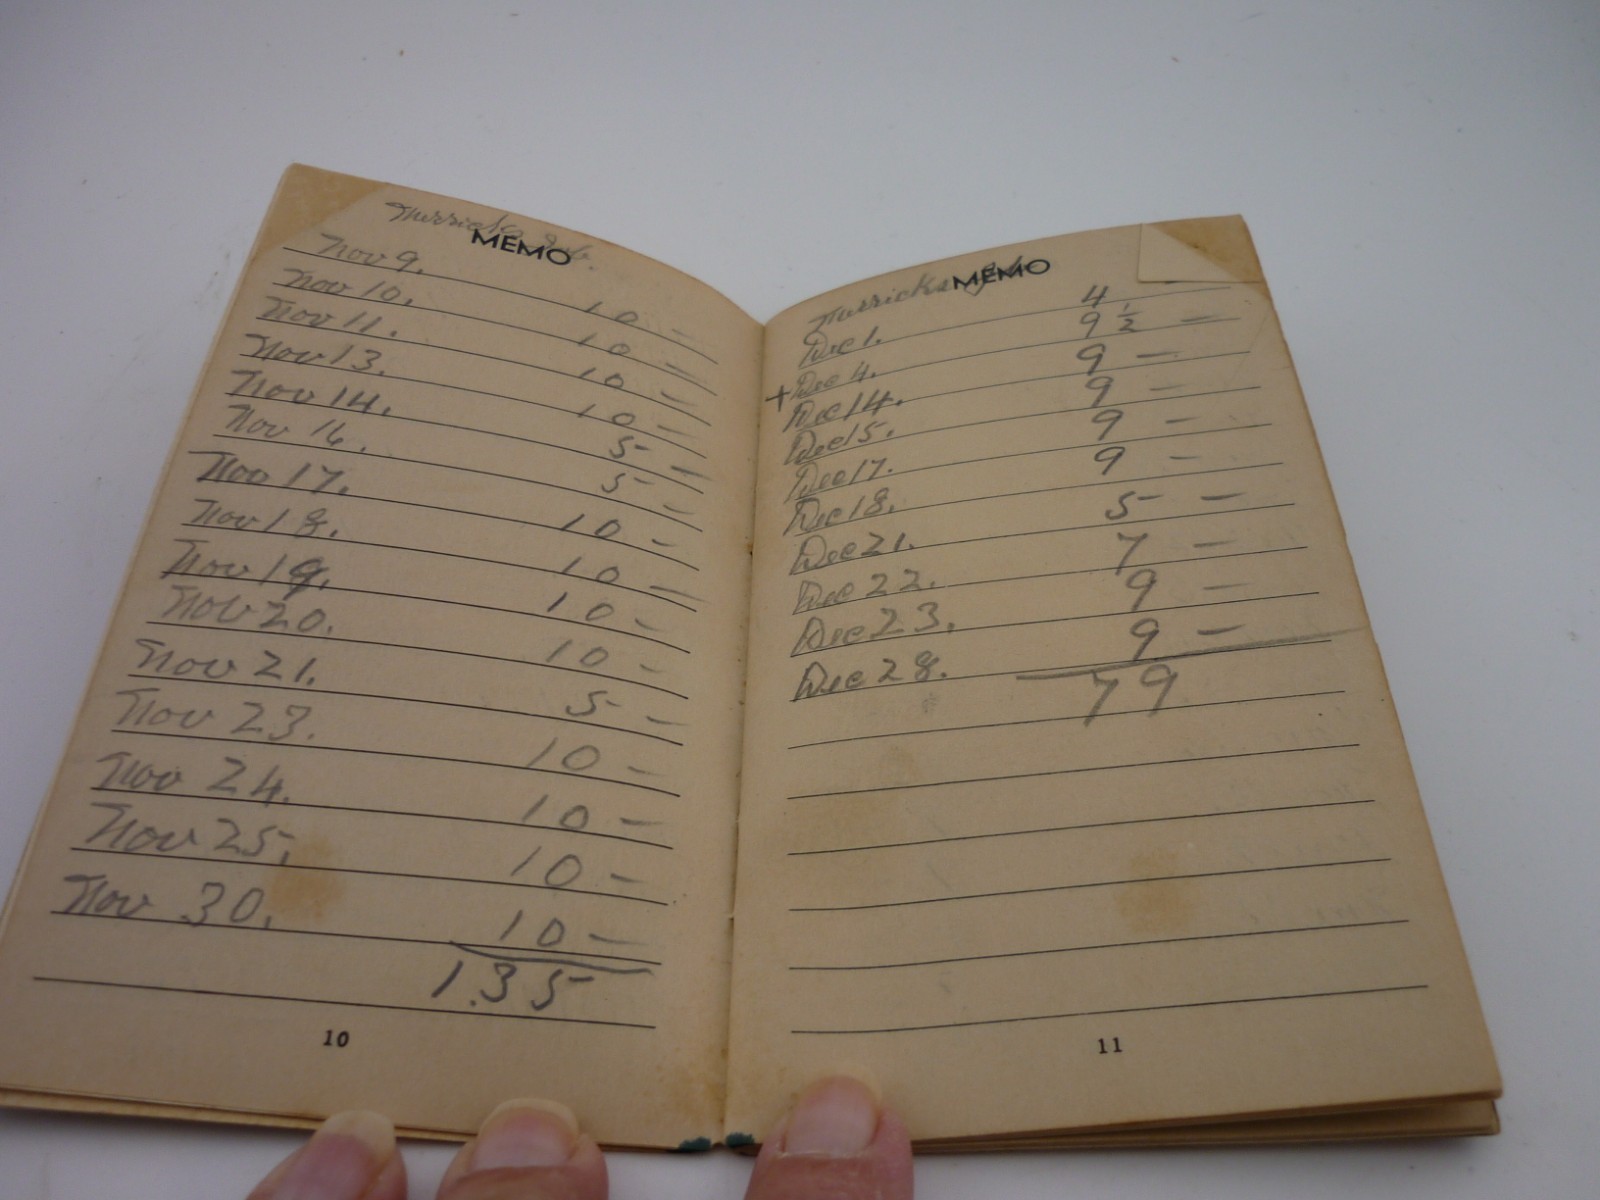 MEMO
Nov 9. 10 -
Nov 10. 10 -
Nov 11. 10 -
Nov 13. 10 -
Nov 14. 5 -
Nov 16. 5 -
Nov 17. 10 -
Nov 18. 10 -
Nov 19. 10 -
Nov 20. 10 -
Nov 21. 5 -
Nov 23. 10 -
Nov 24. 10 -
Nov 25. 10 -
Nov 30. 10 -
135
10
MEMO
Dec 1. 4
+ Dec 4. 9 1/2 -
Dec 14. 9 -
Dec 15. 9 -
Dec 17. 9 -
Dec 18. 9 -
Dec 21. 5 -
Dec 22. 7 -
Dec 23. 9 -
Dec 28. 9 -
79
11